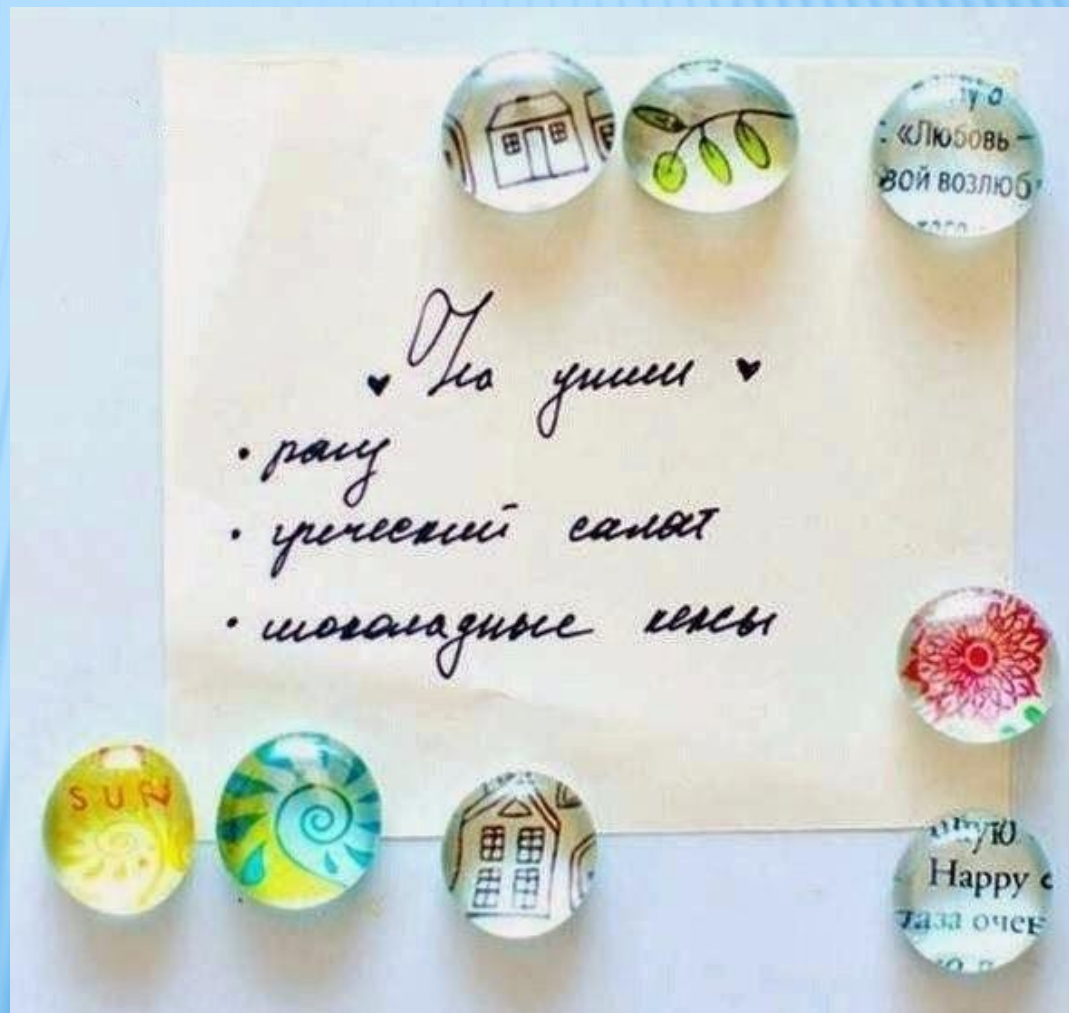 : «Любовь –
вой возлюб
♥ На ужин ♥
• рагу
• греческий салат
• шоколадные кексы
SUN
Happy